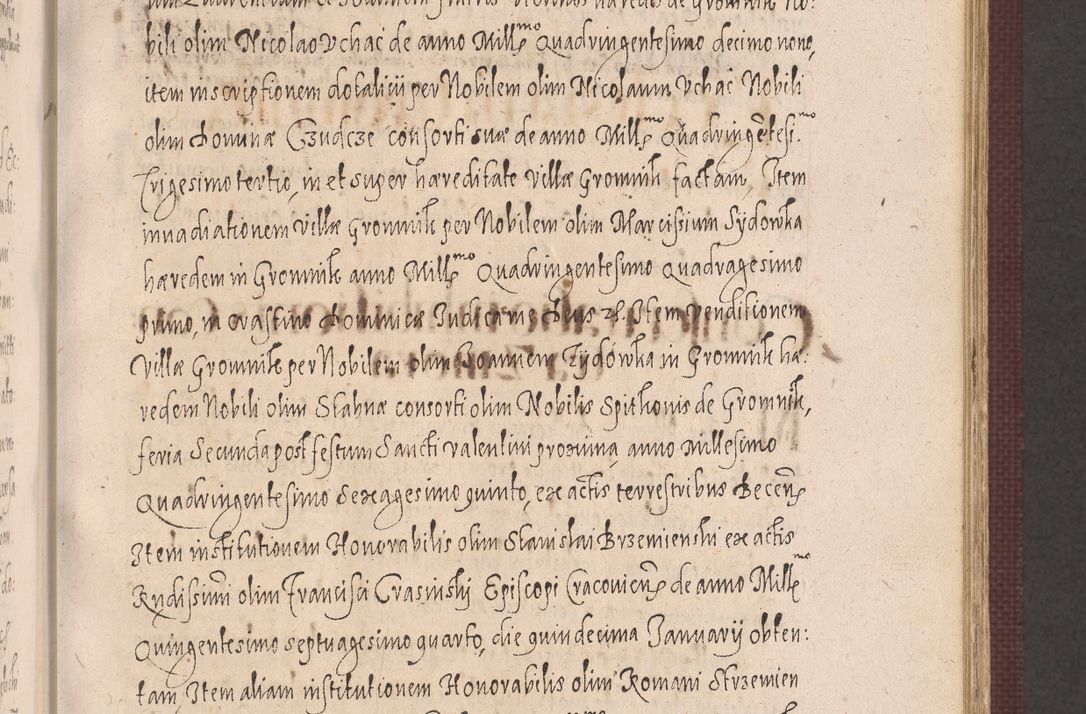 bili olim Nicolao Vchac de anno Mill^mo Quadringentesimo decimo nono,
item inscriptionem dotalicii per Nobilem olim Nicolaum Vchac Nobili
olim Dominæ Czudcze consorti suæ de anno Mill^mo Quadringētesi:^mo
Trigesimo tertio, in et super hæreditate villæ Gromnik factam, Item
invadiationem villæ Gromnik per Nobilem olim Marcissium Sydowka
hæredem in Gromnik anno Mill^mo Quadringentesimo Quadragesimo
primo, in crastino Dominicæ Judica me Deus &c. Item venditionem
villæ Gromnik per Nobilem olim Joannem Zydowka in Gromnik hæ:
redem Nobili olim Stahnæ consorti olim Nobilis Spithonis de Gromnik,
feria Secunda post festum Sancti Valentini proxima, anno millesimo
Quadringentesimo Sexagesimo quinto, ex actis terrestribus Becen̄
Item institutionem Honorabilis olim Stanislai Brzemienski ex actis
Rndissimi olim Francisci Crasinski Episcopi Cracovien̄ de anno Mill^mo
Quingentesimo septuagesimo quarto, die quindecima Januarij obten:
tam, Item aliam institutionem Honorabilis olim Romani Strzemien